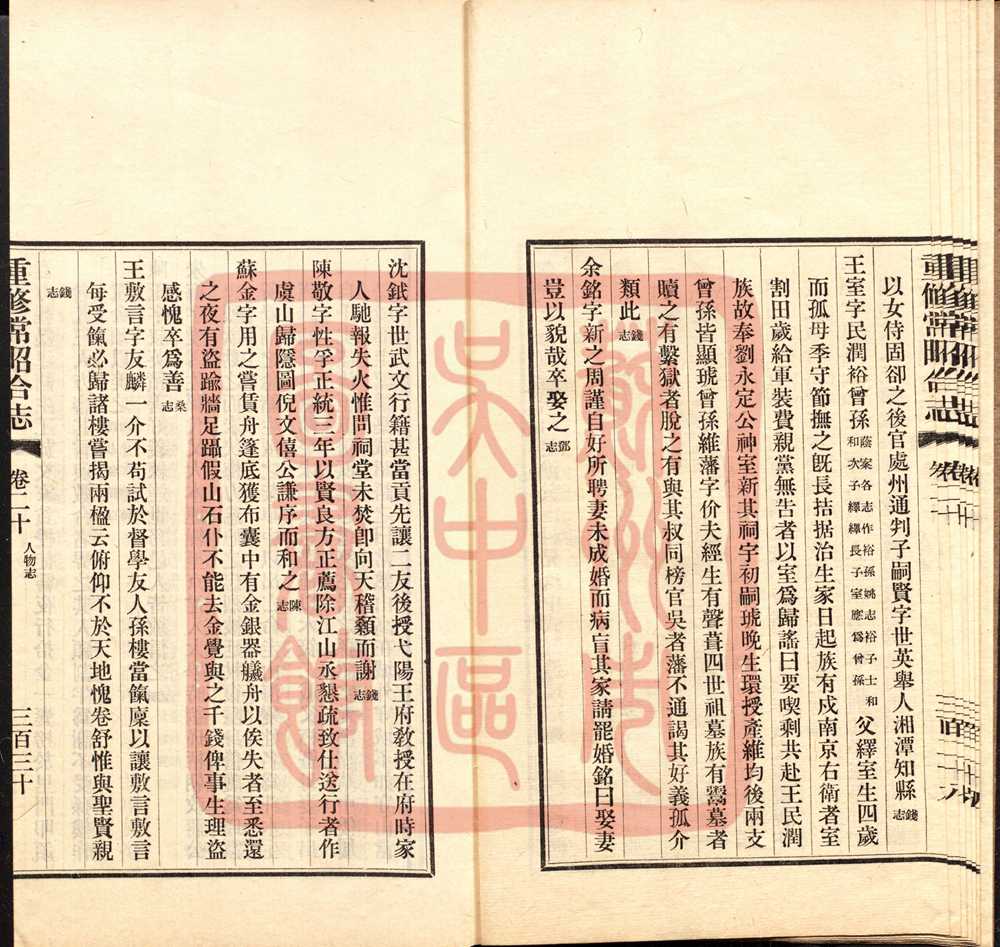 以女侍固卻之後官處州通判子嗣賢字世英舉人湘潭知縣錢志
王室字民潤裕曾孫蔭案各志作裕孫姚志裕子士和和次子繹繹長子室應爲曾孫父繹室生四歲
而孤母季守節撫之既長拮据治生家日起族有戍南京右衛者室
割田歲給軍裝費親黨無告者以室爲歸謠曰要喫剩共赴王民潤
族故奉劉永定公神室新其祠宇初嗣琥晚生環授產維均後兩支
曾孫皆顯琥曾孫維藩字价夫經生有聲葺四世祖墓族有鬻墓者
贖之有繫獄者脫之有與其叔同榜官吳者藩不通謁其好義孤介
類此錢志
余銘字新之周謹自好所聘妻未成婚而病盲其家請罷婚銘曰娶妻
豈以貌哉卒娶之鄧志
沈鉽字世武文行籍甚當貢先讓二友後授弋陽王府教授在府時家
人馳報失火惟問祠堂未焚卽向天稽顙而謝錢志
陳敬字性孚正統三年以賢良方正薦除江山丞懇疏致仕送行者作
虞山歸隱圖倪文僖公謙序而和之陳志
蘇金字用之嘗賃舟篷底獲布囊中有金銀器艤舟以俟失者至悉還
之夜有盜踰牆足躡假山石仆不能去金覺與之千錢俾事生理盜
感愧卒爲善桑志
王敷言字友麟一介不苟試於督學友人孫樓當餼廩以讓敷言敷言
每受餼必歸諸樓嘗揭兩楹云俯仰不於天地愧卷舒惟與聖賢親
錢志
重修常昭合志
卷二十
人物志
三百三十